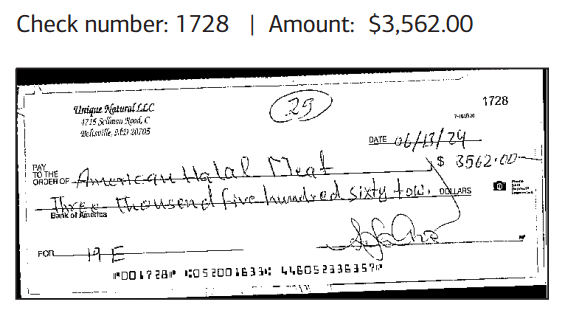 Check number: 1728 | Amount: $3,562.00
1728
Unique Natural LLC
4715 Sellman Road, C
Beltsville, MD 20705
29
DATE 06/13/24
PAY TO THE ORDER OF American Halal Meat $ 3562.00
Three thousand five hundred sixty two. DOLLARS
Bank of America
FOR 19 E
⑈001728⑈ ⑆052001633⑆ 446052336357⑈